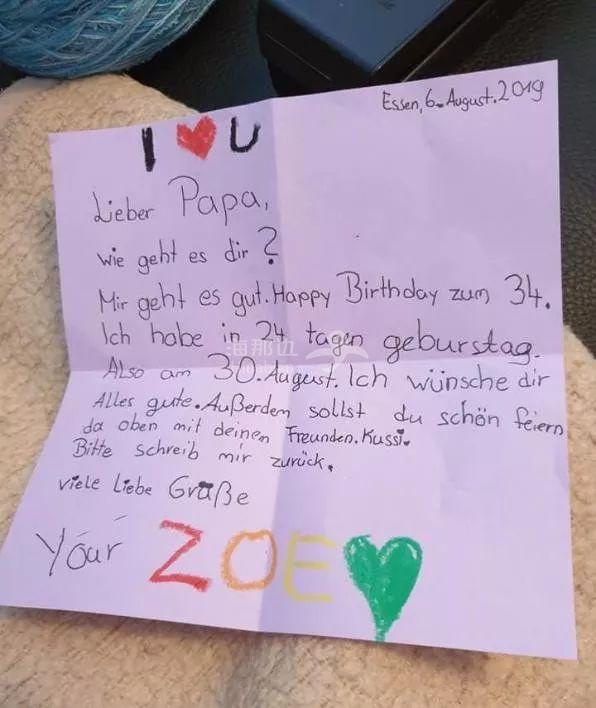 Essen, 6. August. 2019
I ♥ U
Lieber Papa,
Wie geht es dir?
Mir geht es gut. Happy Birthday zum 34.
Ich habe in 24 tagen geburstag.
Also am 30. August. Ich wünsche dir
Alles gute. Außerden sollst du schön feiern
da oben mit deinen Freunden. Kussi.
Bitte schreib mir zurück.
viele Liebe Große
Your ZOE
海那边